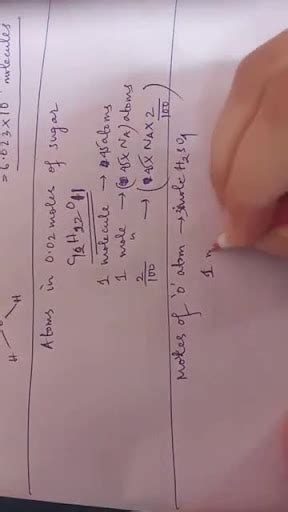 = 6.023 × 10 molecules
H
H
Atoms in 0.02 moles of sugar
C12H22O11
1 molecule → 45 atoms
1 mole → (45 × NA) atoms
2/100 → (45 × NA × 2/100)
Moles of 'O' atom → 1 mole H2SO4
1